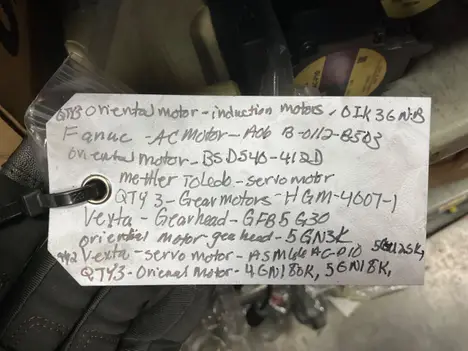 QTY3 oriental motor - induction motors, OIK36N-B
Fanuc - AC Motor - A06 B-0112-B503
oriental motor - BSD540-412D
mettler Toledo - servo motor
QTY 3 - Gear motors - HGM-4007-1
Vexta - Gearhead - GFB5G30
oriential motor - gearhead - 5GN3K, 5GN25K,
QTY2 Vexta - servo motor - ASM46AC-P10
QTY3 - Orienal Motor - 4GN180K, 5GN18K,